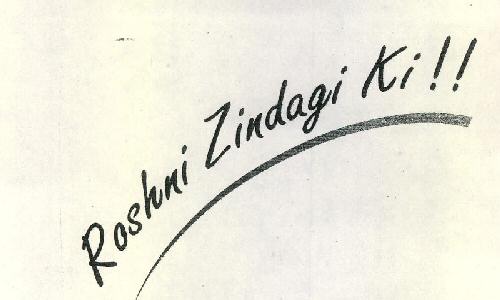 Roshni Zindagi Ki!!